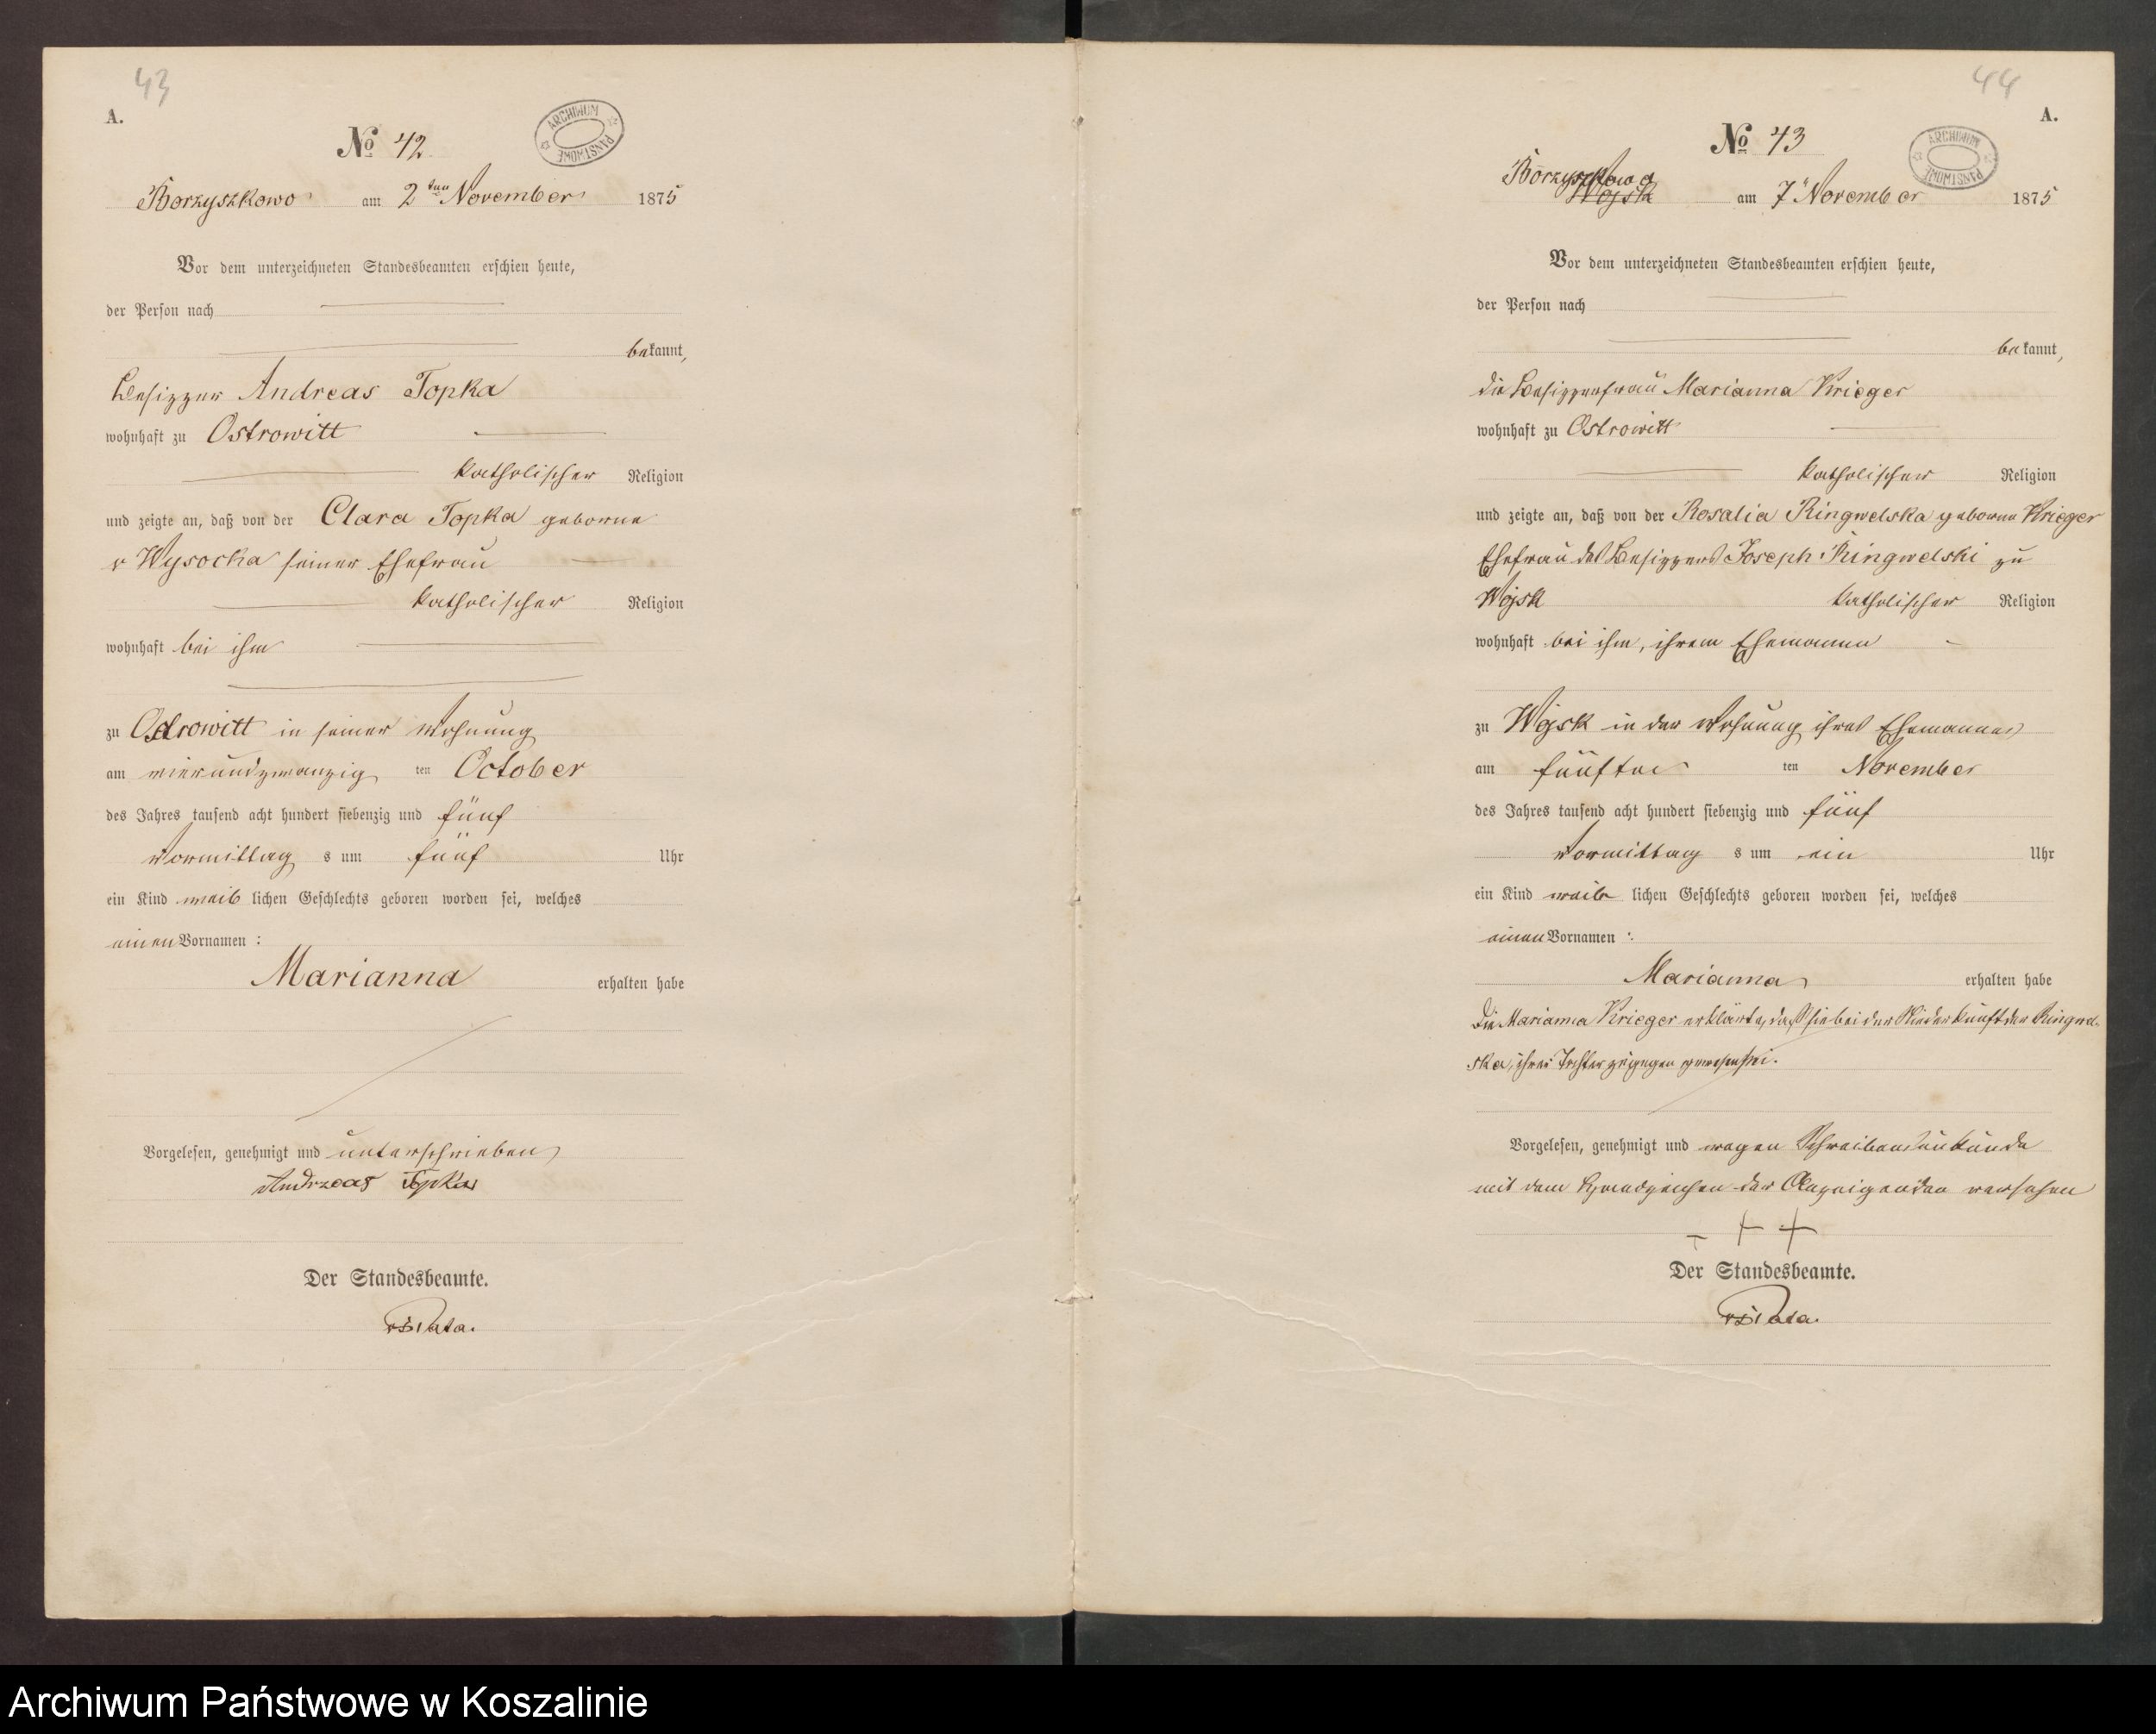 43
A.
ARCHIWUM PAŃSTWOWE
No 42
Borzyszkowo am 2ten November 1875
Vor dem unterzeichneten Standesbeamten erschien heute,
der Person nach
bekannt,
Besizzer Andreas Topka
wohnhaft zu Ostrowitt
katholischer Religion
und zeigte an, daß von der Clara Topka geborne
v Wysocka seiner Ehefrau
katholischer Religion
wohnhaft bei ihm
zu Ostrowitt in seiner Wohnung
am vierundzwanzig ten October
des Jahres tausend acht hundert siebenzig und fünf
Vormittag s um fünf Uhr
ein Kind weib lichen Geschlechts geboren worden sei, welches
einen Vornamen :
Marianna erhalten habe
Vorgelesen, genehmigt und unterschrieben
Andrzeas Topka
Der Standesbeamte.
44
A.
ARCHIWUM PAŃSTWOWE
No 43
Borzyschkowo
Wojsk am 7" November 1875
Vor dem unterzeichneten Standesbeamten erschien heute,
der Person nach
bekannt,
die Besizzerfrau Marianna Krieger
wohnhaft zu Ostrowitt
katholischer Religion
und zeigte an, daß von der Rosalia Ringwelska geborne Krieger
Ehefrau des Besizzers Joseph Ringwelski zu
Wojsk katholischer Religion
wohnhaft bei ihm, ihrem Ehemanne
zu Wojsk in der Wohnung ihres Ehemannes
am fünften ten November
des Jahres tausend acht hundert siebenzig und fünf
Vormittag s um ein Uhr
ein Kind weib lichen Geschlechts geboren worden sei, welches
einen Vornamen :
Marianna erhalten habe
Die Marianna Krieger erklärte, daß sie bei der Niederkunft der Ringwel-
ska, ihrer Tochter zugegen gewesen sei.
Vorgelesen, genehmigt und wegen Schreibensunkunde
mit dem Handzeichen der Anzeigenden versehen
+ + +
Der Standesbeamte.
Archiwum Państwowe w Koszalinie